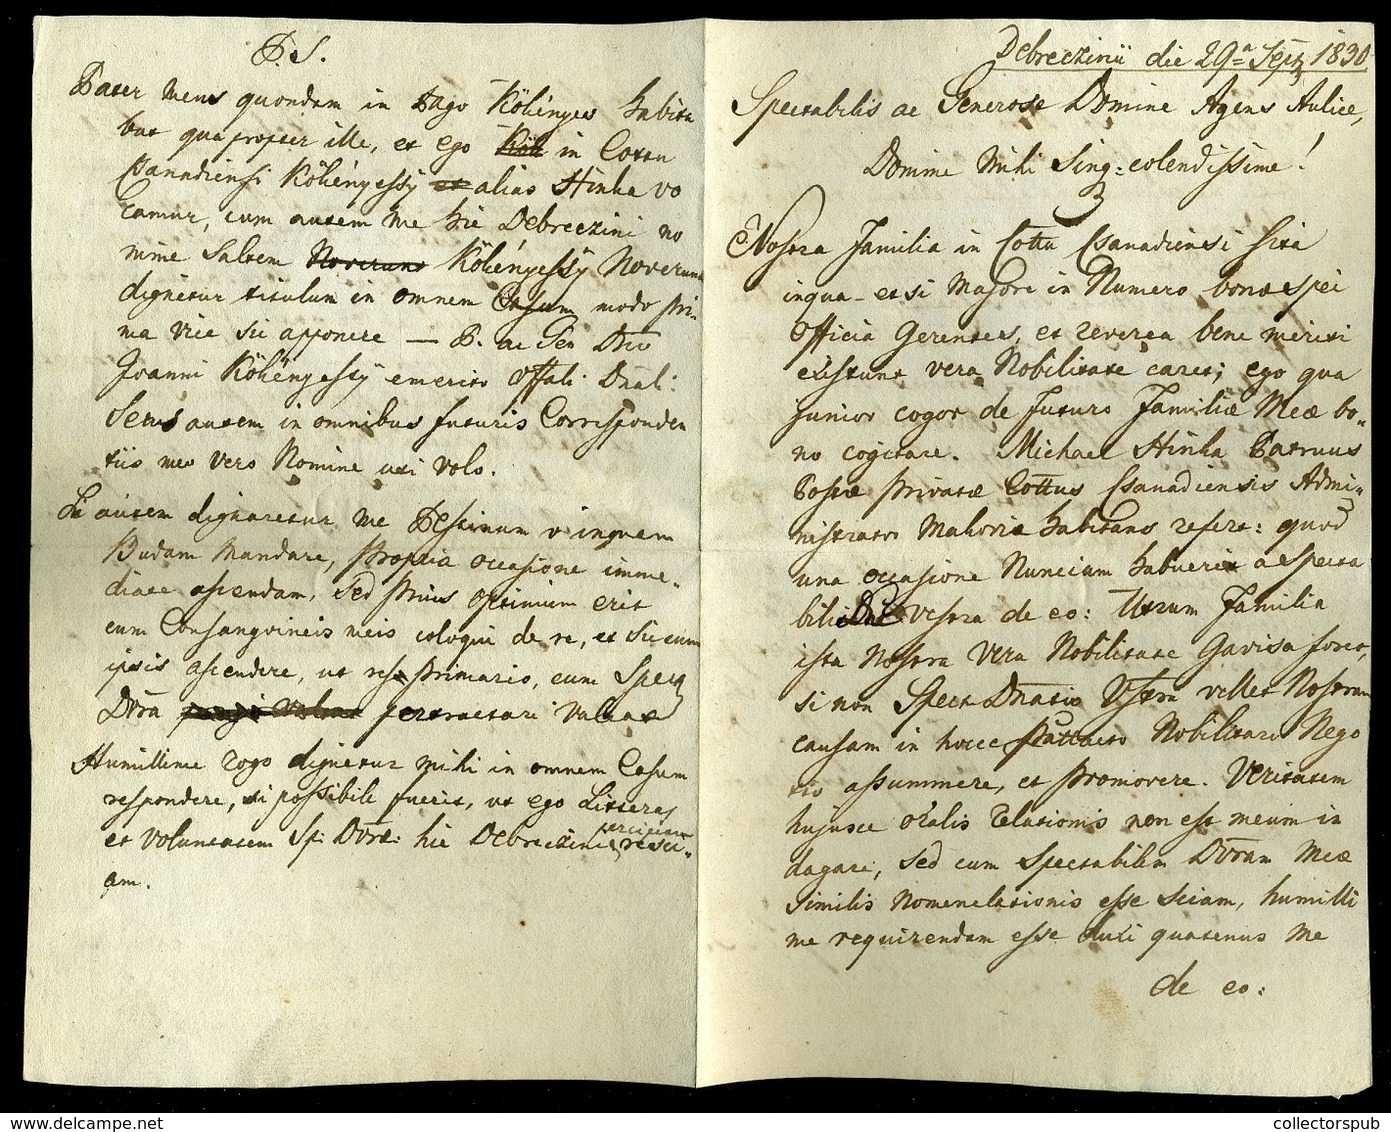 P.S.
Pater meus quondam in Pago Kökényes habita
bat qua propter ille, et ego in Cottu
Csanadiensi Kökényessÿ alias Hinka vo
camur, cum autem me hic Debreczini no
mine saltem Noverunt Kökényessÿ Noverunt
dignetur titulum in omnem Casum modo pri-
ma vice sic apponere — P. ac Gen Dno
Joanni Kökényessÿ emerito Offali Dnali:
Secus autem in omnibus futuris Corresponden
tiis meo vero Nomine uti volo.
Si autem dignaretur me Pestinum v inquem
Budam mandare, propria occasione imme-
diate ascendam, sed prius optimum erit
cum Consangvineis meis coloqui de re, et sic cum
ipsis ascendere, ut re primario, cum Spect
Dvra pertractari valeat
Humillime rogo dignetur mihi in omnem Casum
respondere, si possibile fuerit, ut ego Litteras
et voluntatem Sp: Dvræ: hic Debreczini resci-
am.
Debreczinii die 29a Sept 1830
Spectabilis ac Generose Domine Agens Aulice,
Domine Mihi Sing: colendissime!
Nostra Familia in Cottu Csanadiensi sita
inqua- etsi Majori in Numero bonæ spei
Officia Gerentes, et reverea bene meriti
existunt vera Nobilitate caret; ego qua
junior cogor de futuro Familiæ Meæ bo-
no cogitare. Michael Hinka Patruus
Postæ privatæ Cottus Csanadiensis Admi-
nistrator Makoviæ habitans refert: quod
una occasione Nuncium habuerit a Specta
bili Dne vestra de eo: Utrum Familia
ista Nostra vera Nobilitate Gavisa foret,
si non Spect Dnatio Vestra vellet Nostram
causam in hocce Nobilitari Nego
tio assummere, et promovere. Veritatem
hujusce oralis relationis non est meum in
dagari, sed cum Spectabilem Dvram Meæ
similis Nomenclationis esse sciam, humilli
me requirendam esse duxi quatenus me
de eo: